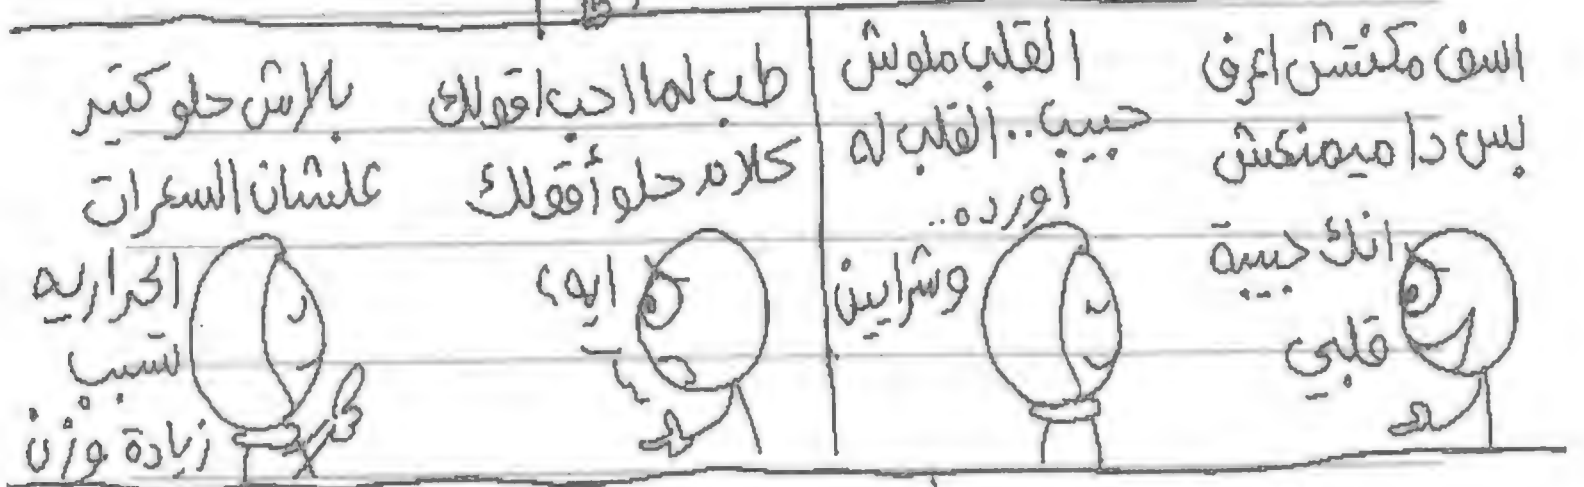 اسف مكنتش اعرف
بس دا ميمنعش
انك حبيبة
قلبي
القلب ملوش
حبيب.. القلب له
أورده..
وشرايين
طب لما احب اقولك
كلام حلو أقولك
ايه؟
بلاش حلو كتير
علشان السعرات
الحراريه
تسبب
زيادة وزن